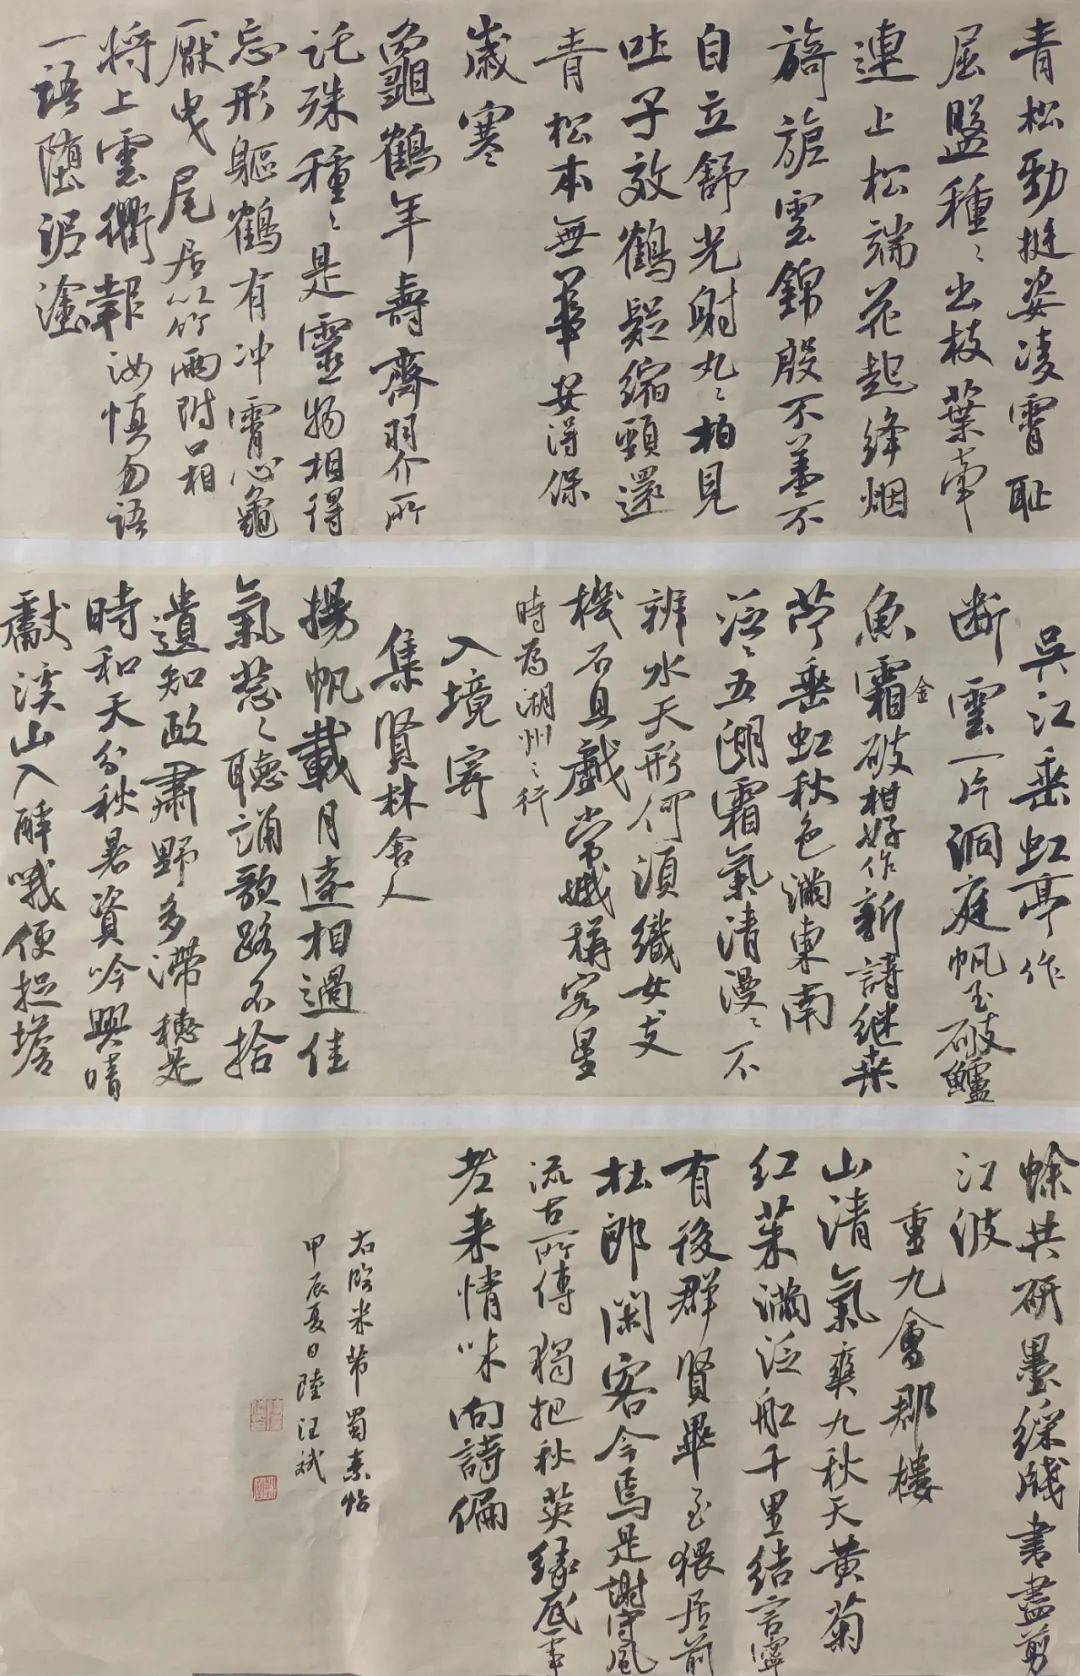 青松勁挺姿凌霄恥
屈盤種〻出枝葉牽
連上松端花起絳烟
旖旎雲錦殷不羞不
自立舒光射丸〻柏見
吐子效鶴疑縮頸還
青松本無華安得保
歲寒
龜鶴年壽齊羽介所
託殊種〻是靈物相得
忘形軀鶴有冲霄心龜
厭曳尾居以竹兩附口相
將上雲衢報汝慎勿語
一語墮泥塗
吳江垂虹亭作
断雲一片洞庭帆玉破鱸
魚霜破柑好作新詩継桑
金
苧垂虹秋色滿東南
泛〻五湖霜氣清漫〻不
辨水天形何須織女支
機石且戲常娥稱客星
時為湖州之行
入境寄
集賢林舍人
揚帆載月遠相過佳
氣葱〻聽誦歌路不拾
遺知政肅野多滯穗是
時和天分秋暑資吟興晴
獻溪山入醉哦便捉蟾
蜍共研墨綵牋書盡剪
江波
重九會郡樓
山清氣爽九秋天黄菊
红茱滿泛船千里結言寧
有後群賢畢至猥居前
杜郎閑客今焉是謝守風
流古所傳獨把秋英緣底事
老来情味向詩偏
右臨米芾蜀素帖
甲辰夏日陸汪斌